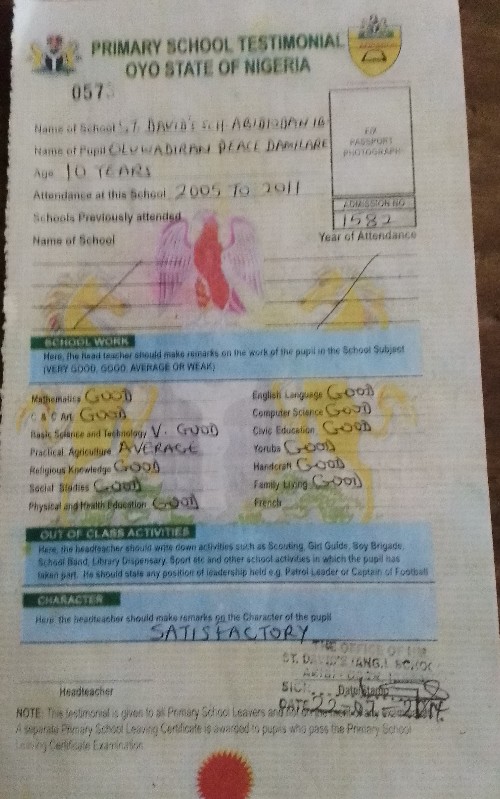 PRIMARY SCHOOL TESTIMONIAL
OYO STATE OF NIGERIA
057
Name of School ST. DAVID'S SCH ABIDIOBAN IB
Name of Pupil OLUWADIRAN PEACE DAMILARE
PASSPORT
PHOTOGRAPH
Age 10 YEARS
Attendance at this School 2005 TO 2011
ADMISSION NO
1582
Schools Previously attended
Name of School Year of Attendance
SCHOOL WORK
Here, the head teacher should make remarks on the work of the pupil in the School Subject
(VERY GOOD, GOOD, AVERAGE OR WEAK)
Mathematics GOOD English Language GOOD
C & C Art GOOD Computer Science GOOD
Basic Science and Technology V. GOOD Civic Education GOOD
Practical Agriculture AVERAGE Yoruba GOOD
Religious Knowledge GOOD Handcraft GOOD
Social Studies GOOD Family Living GOOD
Physical and Health Education GOOD French
OUT OF CLASS ACTIVITIES
Here, the headteacher should write down activities such as Scouting, Girl Guide, Boy Brigade,
School Band, Library Dispensary, Sport etc and other school activities in which the pupil has
taken part. He should state any position of leadership held e.g. Patrol Leader or Captain of Football
CHARACTER
Here the headteacher should make remarks on the Character of the pupil
SATISFACTORY
THE OFFICE OF
ST. DAVID'S ANG.
Headteacher
SIGN Date/Stamp
DATE 22-07-
NOTE: This testimonial is given to all Primary School Leavers and
A separate Primary School Leaving Certificate is awarded to pupils who pass the Primary School
Leaving Certificate Examination